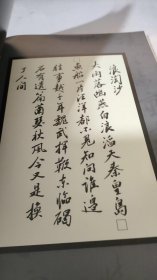 浪淘沙
大雨落幽燕白浪滔天秦皇島□
魚船一片汪洋都不見知向誰邊
往事越千年魏武揮鞭東臨碣
石有遺篇蕭瑟秋風今又是換
了人間